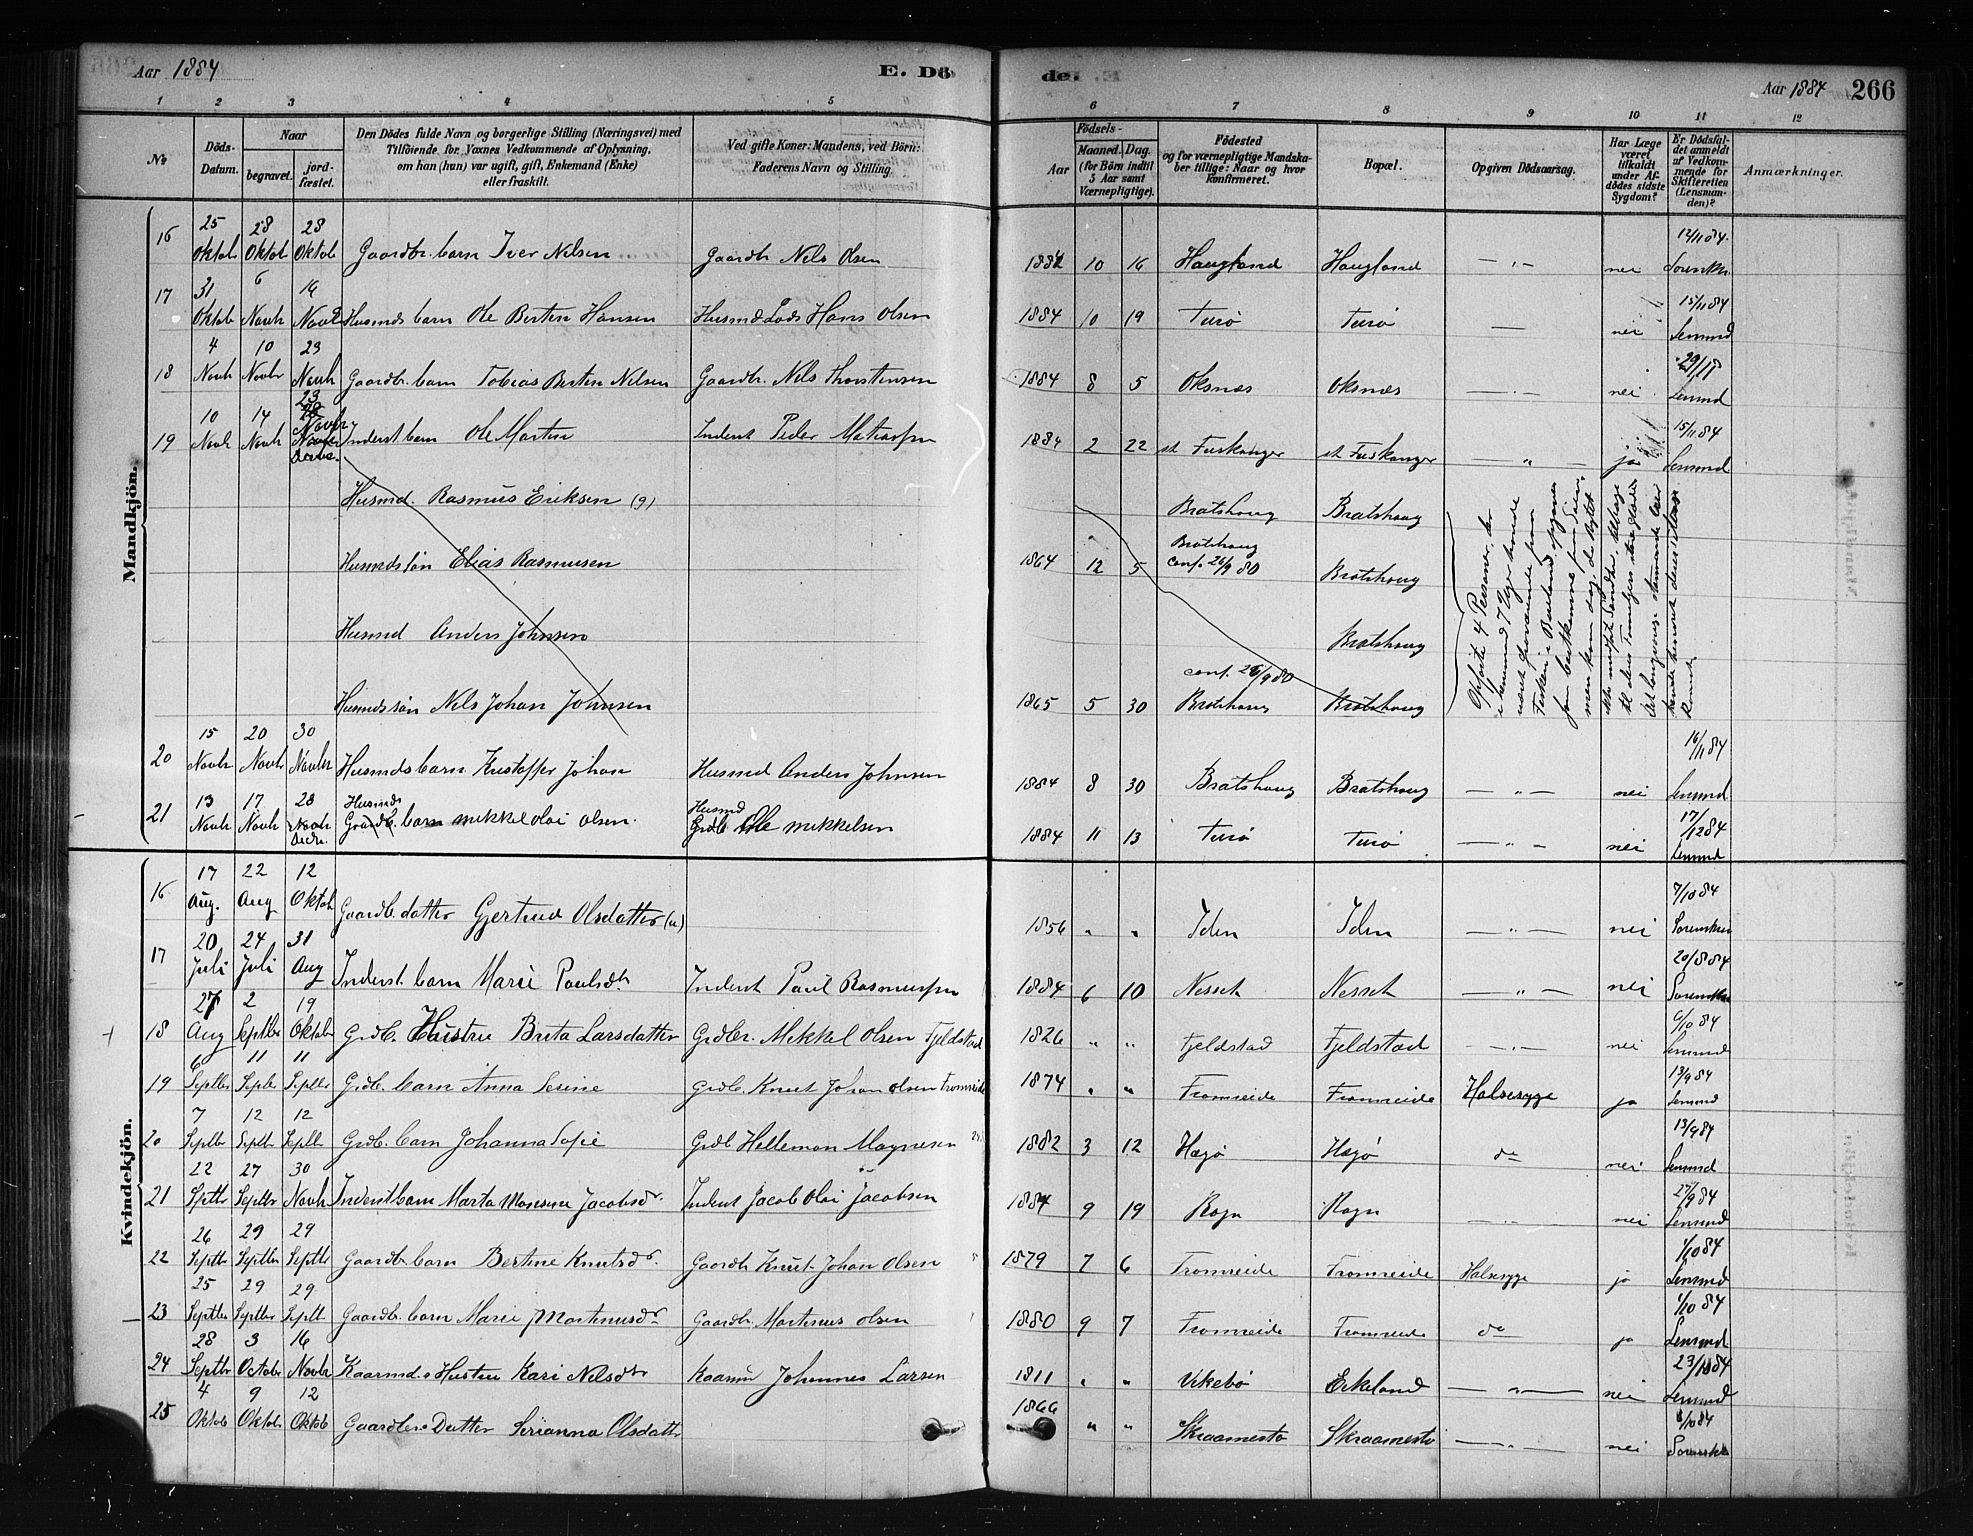 Aar 1884
E. Dö
de. E.
Aar 1884 266
1 2 3 4 5 6 7 8 9 10 11 12
No
Döds-Datum.
Naar
begravet.
jord-fæstet.
Den Dödes fulde Navn og borgerlige Stilling (Næringsvei) med
Tilföiende for Voxnes Vedkommende af Oplysning,
om han (hun) var ugift, gift, Enkemand (Enke)
eller fraskilt.
Ved gifte Koner: Mandens, ved Börn:
Faderens Navn og Stilling.
Födsels-
Aar
Maaned. Dag.
(for Börn indtil
5 Aar samt
Værnepligtige).
Födested
og for værnepligtige Mandska-
ber tillige: Naar og hvor
konfirmeret.
Bopæl.
Opgiven Dödsaarsag.
Har Læge
været
tilkaldt
under Af-
dödes sidste
Sygdom?
Er Dödsfal-
det anmeldt
af Vedkom-
mende for
Skifteretten
(Lensman-
den)?
Anmærkninger.
Mandkjön.
16 25 Oktob 28 Oktob 28 Oktob Gaardbr. barn Iver Nilsen Gaardbr Nils Olsen 1882 10 16 Haugland Haugland — " — nei 12/11 84. Sorenskr.
17 31 Oktob 6 Novbr 16 Novbr Husmds barn Ole Bertin Hansen Husmd Lads Hans Olsen 1884 10 19 Turö Turö — nei 15/11 84 Lensmd
18 4 Novbr 10 Novbr 23 Novbr Gaardbr. barn Tobias Bertin Nilsen Gaardbr. Nils Thorstensen 1884 8 5 Oksnæs Oksnæs — " — nei 29/11 Lensmd
19 10 Novbr 14 Novbr 23 Novbr Inderst barn Ole Martin Inderst Peder 1884 2 22 st Fuskanger st Fuskanger — " — ja 15/11 84 Lensmd
Husmd. Rasmus Eriksen (g) Bratshoug Bratshoug
Husmdssön Elias Rasmusen 1864 12 5 Bratshoug conf. 26/9 80 Bratshoug
Husmd Anders Johnsen Bratshoug
Husmdssön Nils Johan Johnsen 1865 5 30 conf. 26/9 80 Bratshoug Bratshoug
20 15 Novbr 20 Novbr 30 Novbr Husmds barn Kristoffer Johan Husmd Anders Johnsen 1884 8 30 Bratshoug Bratshoug — " — nei 16/11 84 Lensmd
21 13 Novbr 17 Novbr 28 Decbr. Husmds Gaardb. barn Mikkel Olai Olsen. Husmd Grdb Ole Mikkelsen 1884 11 13 Turö Turö — " — nei 17/12 84 Lensmd
Kvindekjön.
16 17 Aug. 22 Aug 12 Oktob Gaardb. datter Gjertrud Olsdatter (u) 1856 " " Iden Iden — " — nei 7/10 84 Sorenskr
17 20 Juli 24 Juli 31 Aug Inderst. barn Marie Paulsdr Inderst Paul Rasmussen 1884 6 10 Nesset Nesset — " — nei 20/8 84 Sorenskr
18 27 Aug 2 Septbr 19 Oktobr Grdb. Hustru Brita Larsdatter Grdbr. Mikkel Olsen Fjeldstad 1826 " " Fjeldstad Fjeldstad — " — nei 6/10 84 Lensmd
19 6 Septbr 11 Septbr 11 Septbr Grdb. barn Anna Serine Grdb. Knut Johan Olsen Fromreide 1874 " " Fromreide Fromreide Halssyge ja 13/9 84 Lensmd
20 7 Septbr 12 Septbr 12 Septbr Grdb. barn Johanna Sofie Grdb Hellemon Magnesen 1882 3 12 Hægö Hægö do nei 13/9 84 Lensmd
21 22 Septbr 27 Septbr 30 Novbr Inderst barn Marta Monsine Jacobsdr. Inderst Jacob Olai Jacobsen 1884 9 19 Rogn Rogn — " — nei 27/9 84 Lensmd
22 26 Septbr 29 Septbr 29 Septbr Gaardbr barn Bertine Knutsdr. Gaardb Knut Johan Olsen 1879 7 6 Fromreide Fromreide Halssyge ja 1/10 84 Lensmd
23 25 Septbr 29 Septbr 29 Septbr Gaardbr. barn Marie Martinusdr Gaardbr. Martinus Olsen 1880 9 7 Fromreide Fromreide do ja 1/10 84 Lensmd
24 28 Septbr 3 Octobr 16 Novbr Kaarmds Hustru Kari Nilsdtr Kaarm Johannes Larsen 1811 " " Vikebö Erkeland — " — nei 23/10 84 Lensmd
25 4 Oktob 9 Oktob 12 Oktob Gaardbrs Datter Serianna Olsdatter 1866 " " Skraamestö Skraamestö — " — nei 8/10 84 Sorenskr